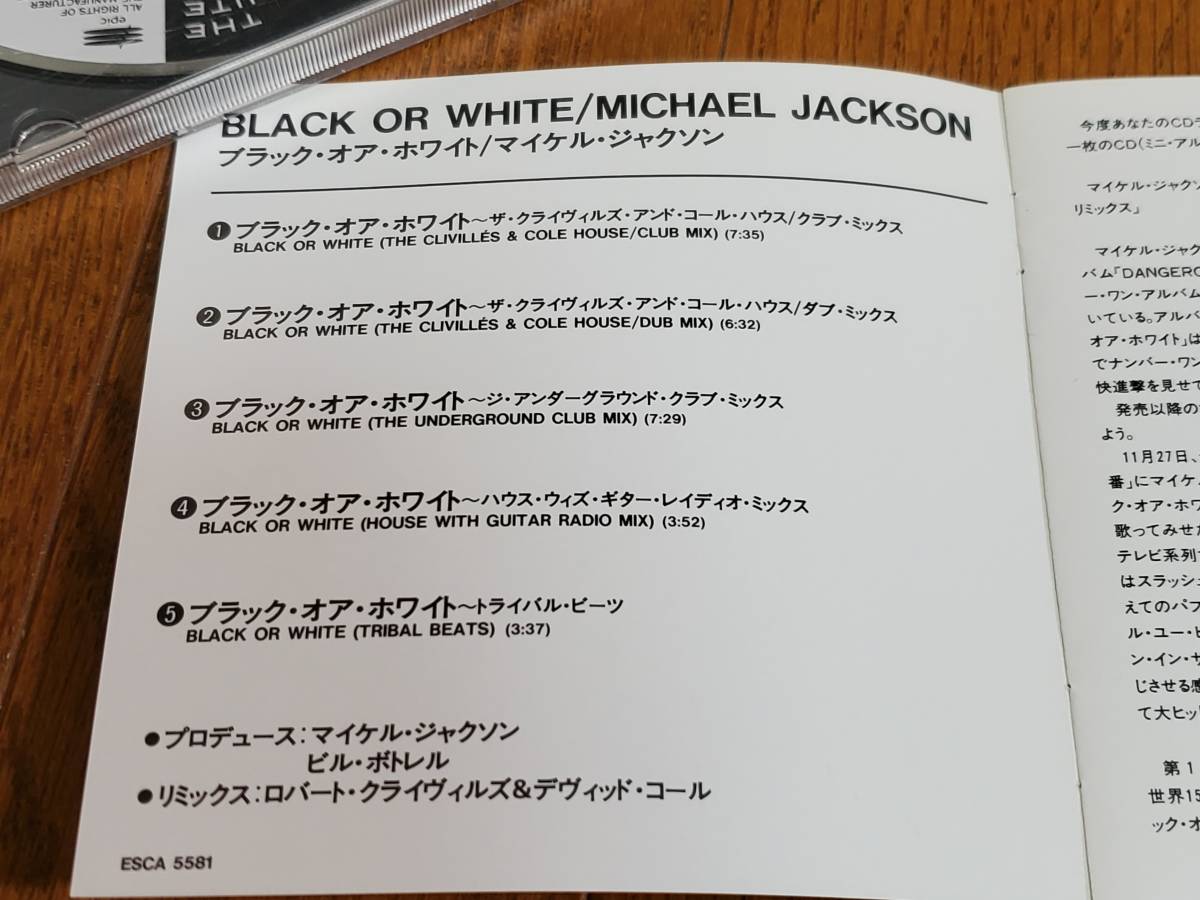 THE
epic
ALL RIGHTS OF
THE MANUFACTURER
BLACK OR WHITE/MICHAEL JACKSON
ブラック・オア・ホワイト/マイケル・ジャクソン
❶ブラック・オア・ホワイト〜ザ・クライヴィルズ・アンド・コール・ハウス/クラブ・ミックス
BLACK OR WHITE (THE CLIVILLÉS & COLE HOUSE/CLUB MIX) (7:35)
❷ブラック・オア・ホワイト〜ザ・クライヴィルズ・アンド・コール・ハウス/ダブ・ミックス
BLACK OR WHITE (THE CLIVILLÉS & COLE HOUSE/DUB MIX) (6:32)
❸ブラック・オア・ホワイト〜ジ・アンダーグラウンド・クラブ・ミックス
BLACK OR WHITE (THE UNDERGROUND CLUB MIX) (7:29)
❹ブラック・オア・ホワイト〜ハウス・ウィズ・ギター・レイディオ・ミックス
BLACK OR WHITE (HOUSE WITH GUITAR RADIO MIX) (3:52)
❺ブラック・オア・ホワイト〜トライバル・ビーツ
BLACK OR WHITE (TRIBAL BEATS) (3:37)
●プロデュース:マイケル・ジャクソン
ビル・ボトレル
●リミックス:ロバート・クライヴィルズ&デヴィッド・コール
ESCA 5581
今度あなたのCDラ
一枚のCD(ミニ・アル
マイケル・ジャクソ
リミックス」
マイケル・ジャク
バム「DANGERO
ー・ワン・アルバム
いている。アルバ
オア・ホワイト」は
でナンバー・ワン
快進撃を見せて
発売以降の
よう。
11月27日、
番」にマイケル
ク・オア・ホワ
歌ってみせた
テレビ系列
はスラッシュ
えてのパフ
ル・ユー・ビ
ン・イン・ザ
じさせる感
て大ヒット
第1
世界15
ック・オ